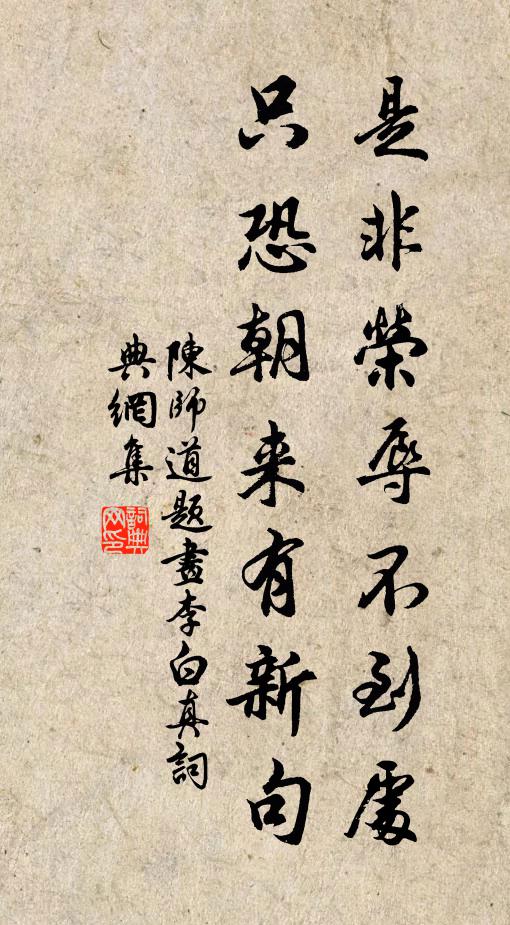 是非榮辱不到處
只恐朝来有新句
陳師道題畫李白真詞
典網集
詞典網印